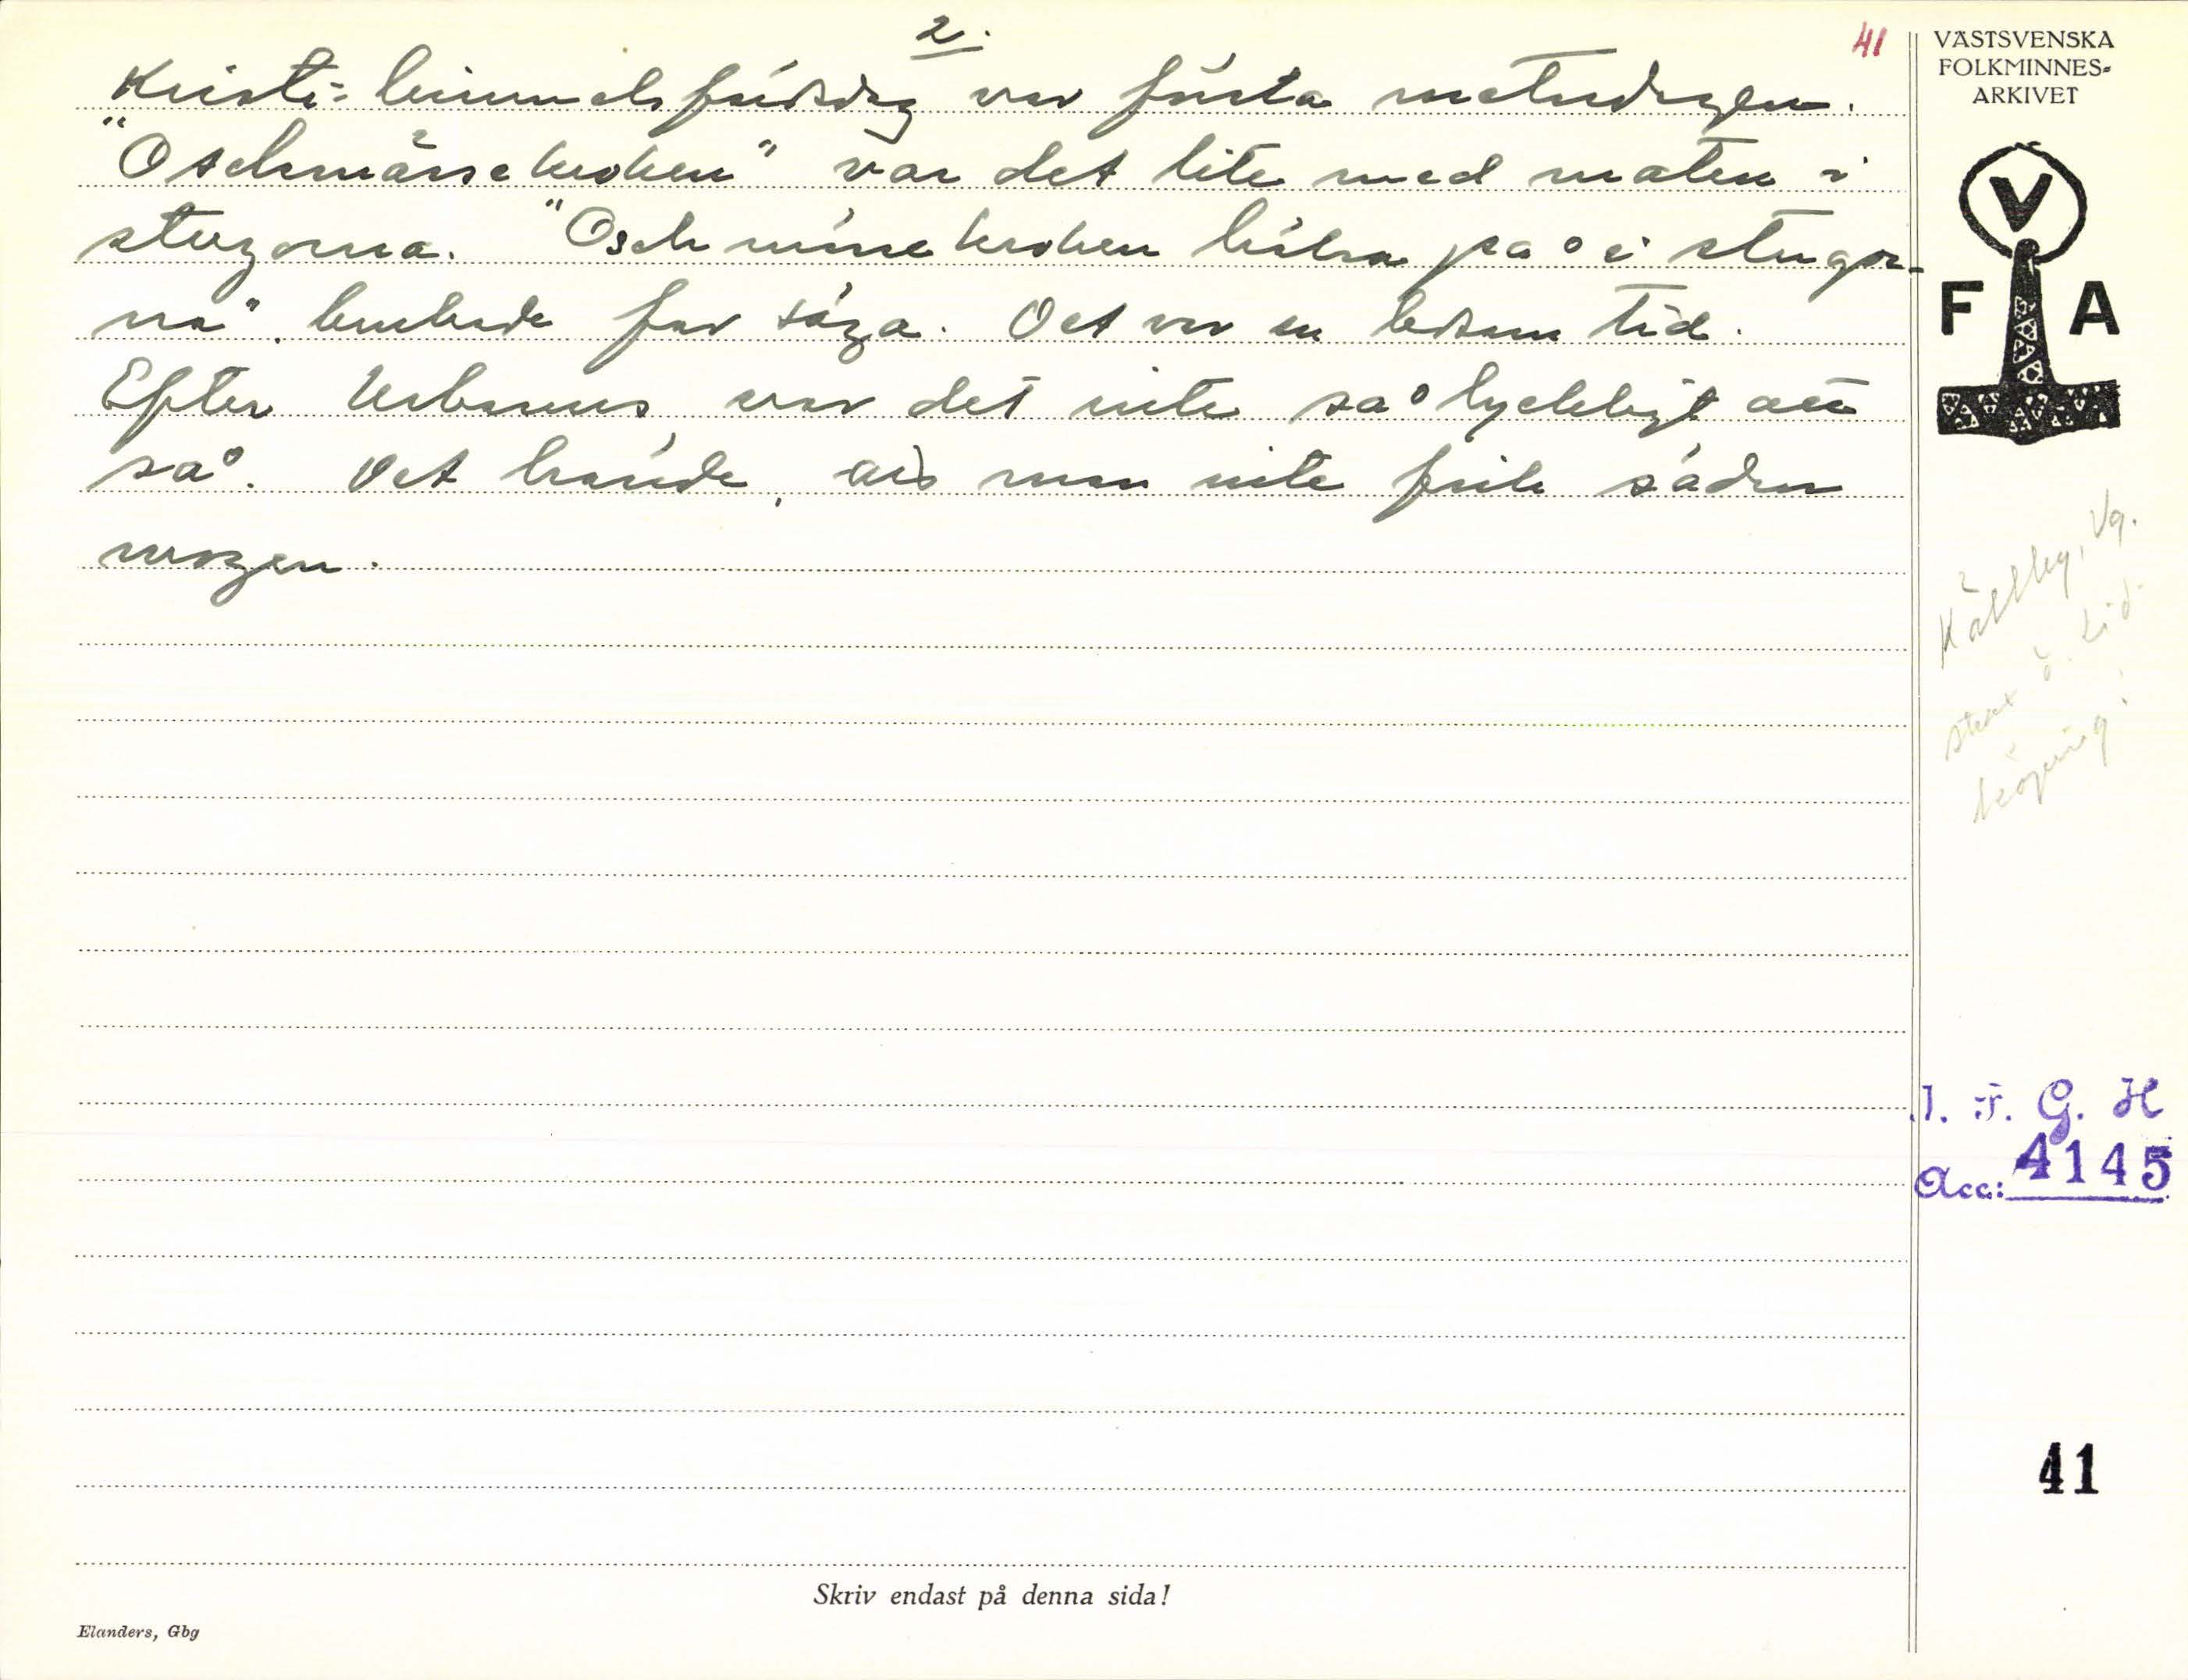 2.
41
Kristi-himmelsfärdsdag var första metardagen.
"Oschmärsekroken" var det lite med maten i
stugorna. "Oschmärsekroken hälsa på i stugor-
na", brukade far säga. Det var en ledsam tid.
Efter Urbanus var det inte så lyckligt att
så. Det hände, att man inte fick säden
mogen.
VÄSTSVENSKA
FOLKMINNES-
ARKIVET
V
F A
Källby, Vg.
strax ö. Lid-
köping!
I. F. G. H
Acc: 4145
41
Skriv endast på denna sida!
Elanders, Gbg